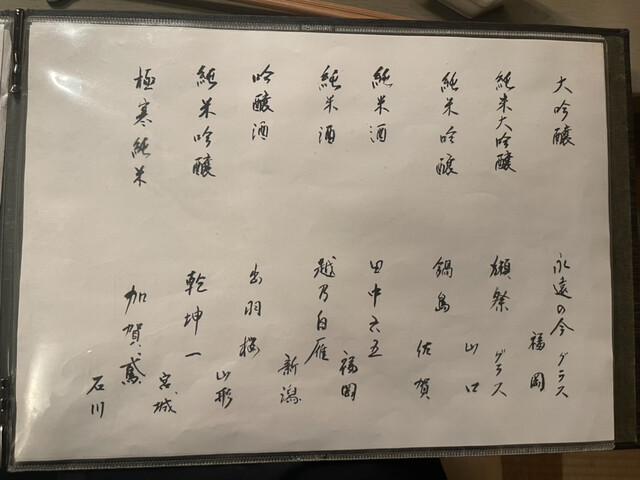 大吟醸 永遠の今 グラス 福岡
純米大吟醸 獺祭 グラス 山口
純米吟醸 鍋島 佐賀
純米酒 田中六五 福岡
純米酒 越乃白雁 新潟
吟醸酒 出羽桜 山形
純米吟醸 乾坤一 宮城
極寒純米 加賀鳶 石川